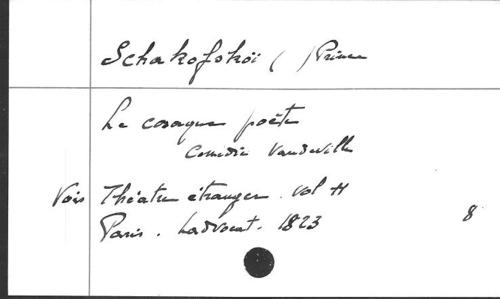 Schakofskoï ( ) Prince
Le cosaque poëte
Comédie Vaudeville
Vois Théatre étranger. Vol H
Paris. Ladvocat. 1823
8